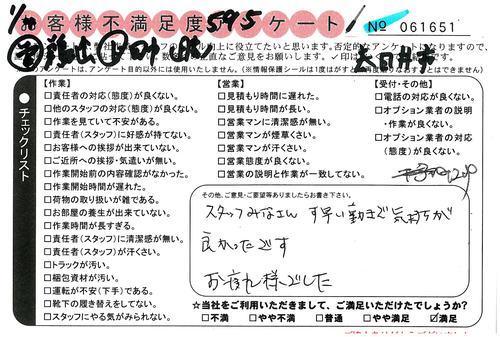 お客様不満足度アンケート
№ 061651
【作業】
□責任者の対応(態度)が良くない。
□他のスタッフの対応(態度)が良くない。
□作業を見ていて不安がある。
□責任者(スタッフ)に好感が持てない。
□お客様への挨拶が出来ていない。
□ご近所への挨拶・気遣いが無い。
□作業開始前の内容確認がなかった。
□作業開始時間が遅れた。
□荷物の取り扱いが雑である。
□お部屋の養生が出来ていない。
□作業時間が長すぎる。
□責任者(スタッフ)に清潔感が無い。
□責任者(スタッフ)が汗くさい。
□トラックが汚い。
□梱包資材が汚い。
□運転が不安(下手)である。
□靴下の履き替えをしてない。
□スタッフにやる気がみられない。
【営業】
□見積もり時間に遅れた。
□見積もり時間が長い。
□営業マンに清潔感が無い。
□営業マンが煙草くさい。
□営業マンが汗くさい。
□営業態度が良くない。
□営業の説明と作業が一致してない。
【受付・その他】
□電話の対応が良くない。
□オプション業者の説明
・作業が良くない。
□オプション業者の対応
(態度)が良くない。
●チェックリスト
その他、ご意見・ご要望等ありましたらお書き下さい。
スタッフみなさん す早い動きで気持ちが
良かったです
お疲れ様でした
☆当社をご利用いただきまして、ご満足いただけたでしょうか?
□不満 □やや不満 □普通 □やや満足 ☑満足